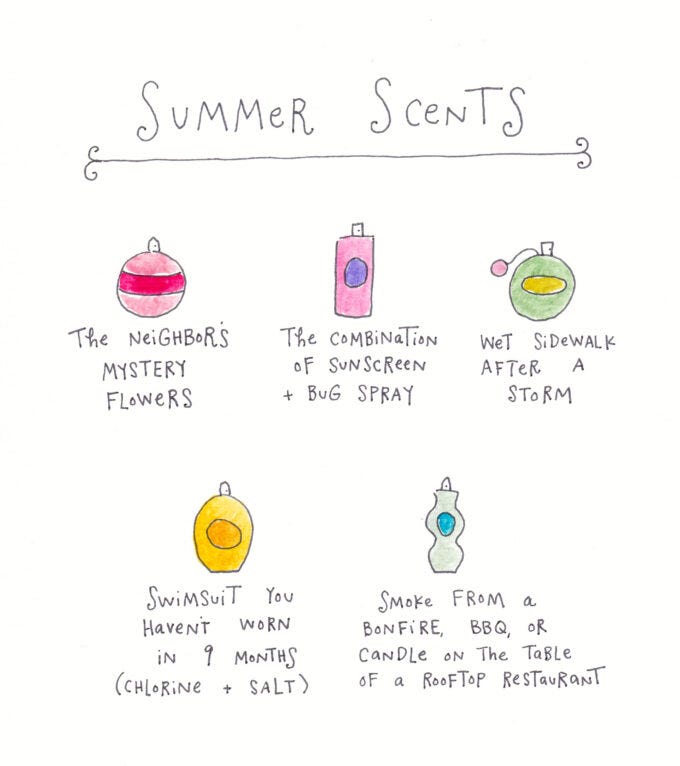 SUMMER SCENTS
THE NEIGHBOR'S
MYSTERY
FLOWERS
THE COMBINATION
OF SUNSCREEN
+ BUG SPRAY
WET SIDEWALK
AFTER A
STORM
SWIMSUIT YOU
HAVEN'T WORN
IN 9 MONTHS
(CHLORINE + SALT)
SMOKE FROM A
BONFIRE, BBQ, OR
CANDLE ON THE TABLE
OF A ROOFTOP RESTAURANT